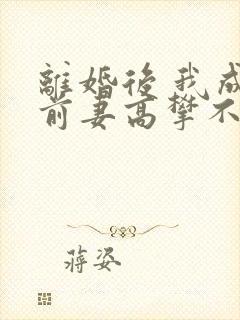 離婚後我成
前妻高攀不
蔣姿